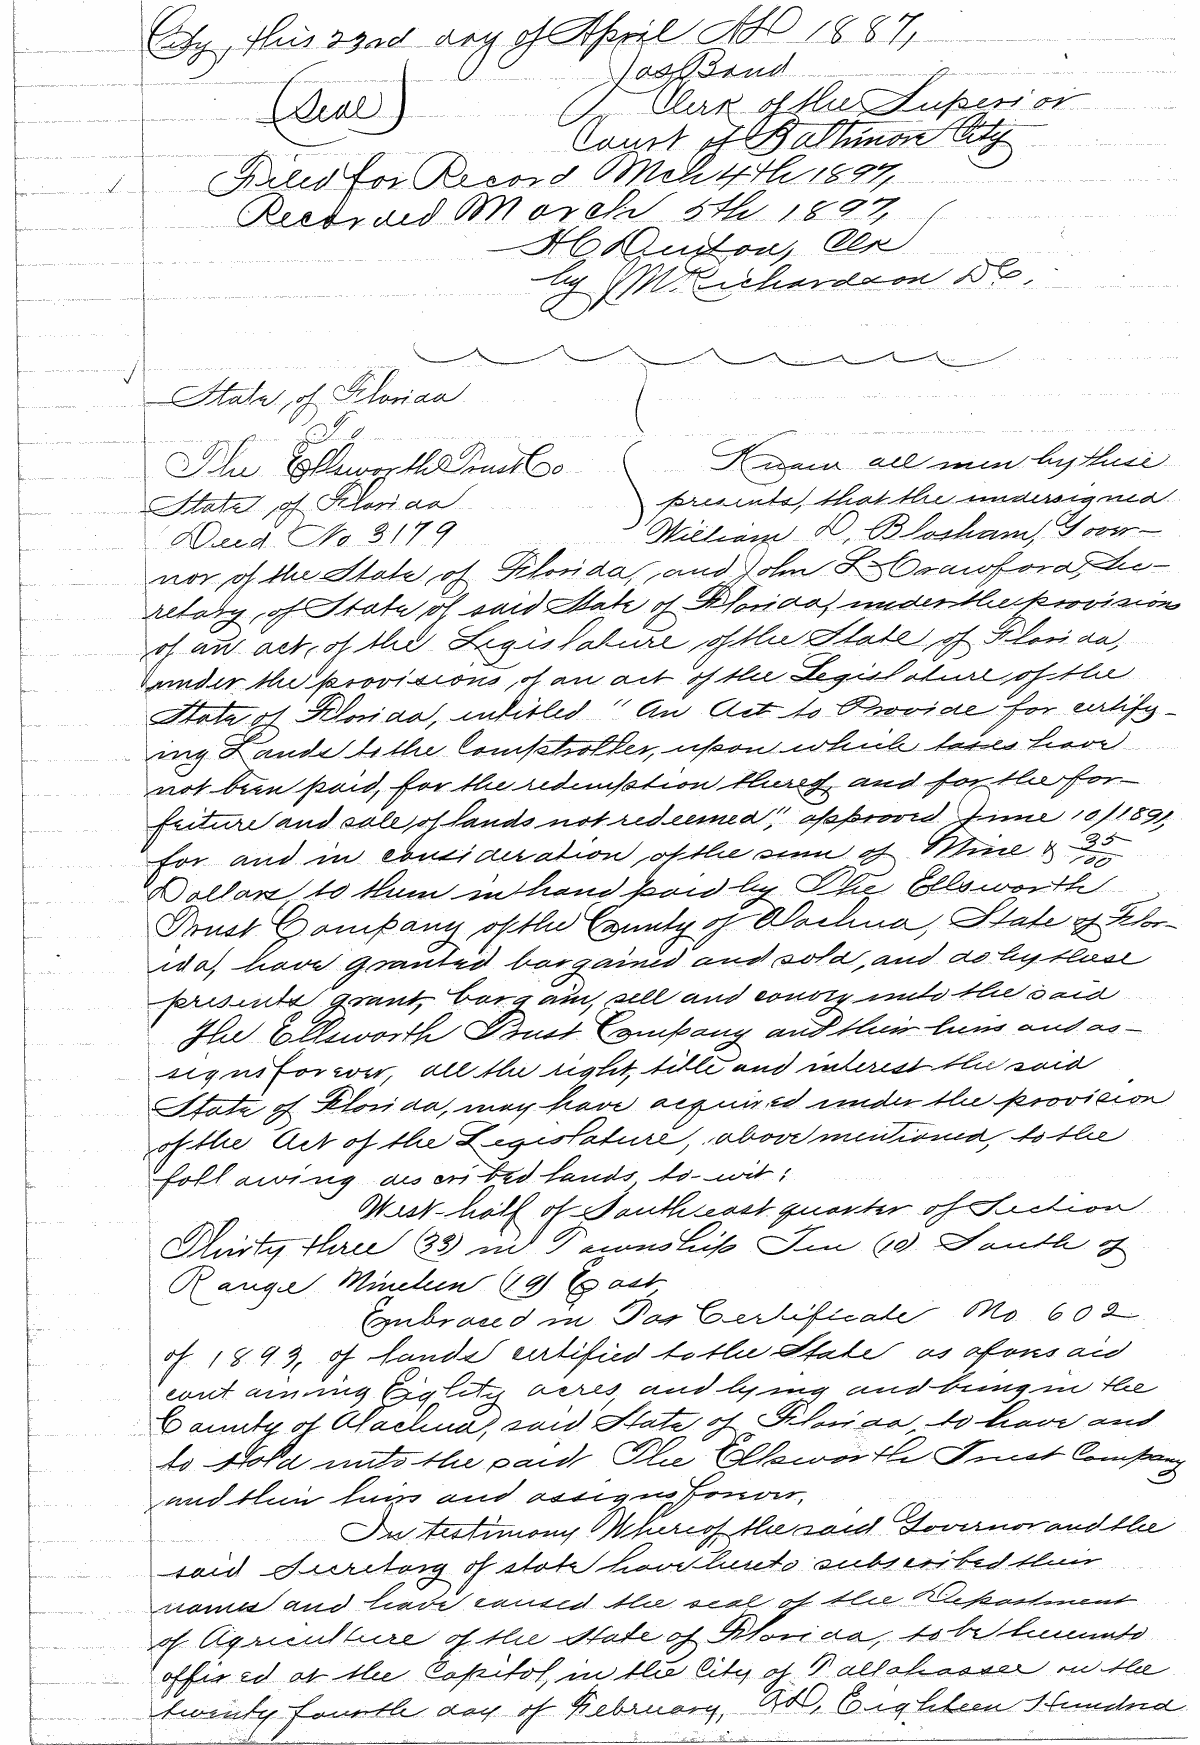 City, this 23rd day of April AD 1887,
Jas Bond
(Seal)
Clerk of the Superior
Court of Baltimore City
Filed for Record Mch 4th 1897,
Recorded March 5th 1897,
H C Denton, Clk
by J M Richardson D C.
State of Florida
To
The Ellsworth Trust Co
State of Florida
Deed No 3179
Know all men by these
presents, that the undersigned
William D, Bloxham, Gover-
nor of the State of Florida, and John L Crawford, Se-
cretary, of State of said State of Florida, under the provision
of an act, of the Legislature of the State of Florida,
under the provisions, of an act of the Legislature, of the
State of Florida, entitled "An Act to Provide for certify-
ing Lands to the Comptroller, upon which taxes have
not been paid, for the redemption thereof and for the for-
feiture and sale of lands not redeemed", approved June 10/1891,
for and in consideration, of the sum of Nine & 35/100
Dollars, to them in hand paid by The Ellsworth
Trust Company of the County of Alachua, State of Flor-
ida, have granted bargained and sold, and do by these
presents grant, bargain, sell and convey unto the said
The Ellsworth Trust Company and their heirs and as-
signs forever, all the right, title and interest the said
State of Florida, may have acquired under the provision
of the Act of the Legislature, above mentioned, to the
following described lands, to-wit:
West-half of Southeast quarter of Section
Thirty three (33) in Township Ten (10) South of
Range Nineteen (19) East,
Embraced in Tax Certificate No 602
of 1893, of lands certified to the State as aforesaid
containing Eighty acres, and lying and being in the
County of Alachua, said State of Florida, to have and
to Hold unto the said The Ellsworth Trust Company
and their heirs and assigns forever,
In testimony Whereof the said Governor and the
said Secretary of state have hereto subscribed their
names and have caused the seal of the Department
of Agriculture of the State of Florida, to be hereunto
affixed at the Capitol, in the City of Tallahassee on the
twenty fourth day of February, AD, Eighteen Hundred